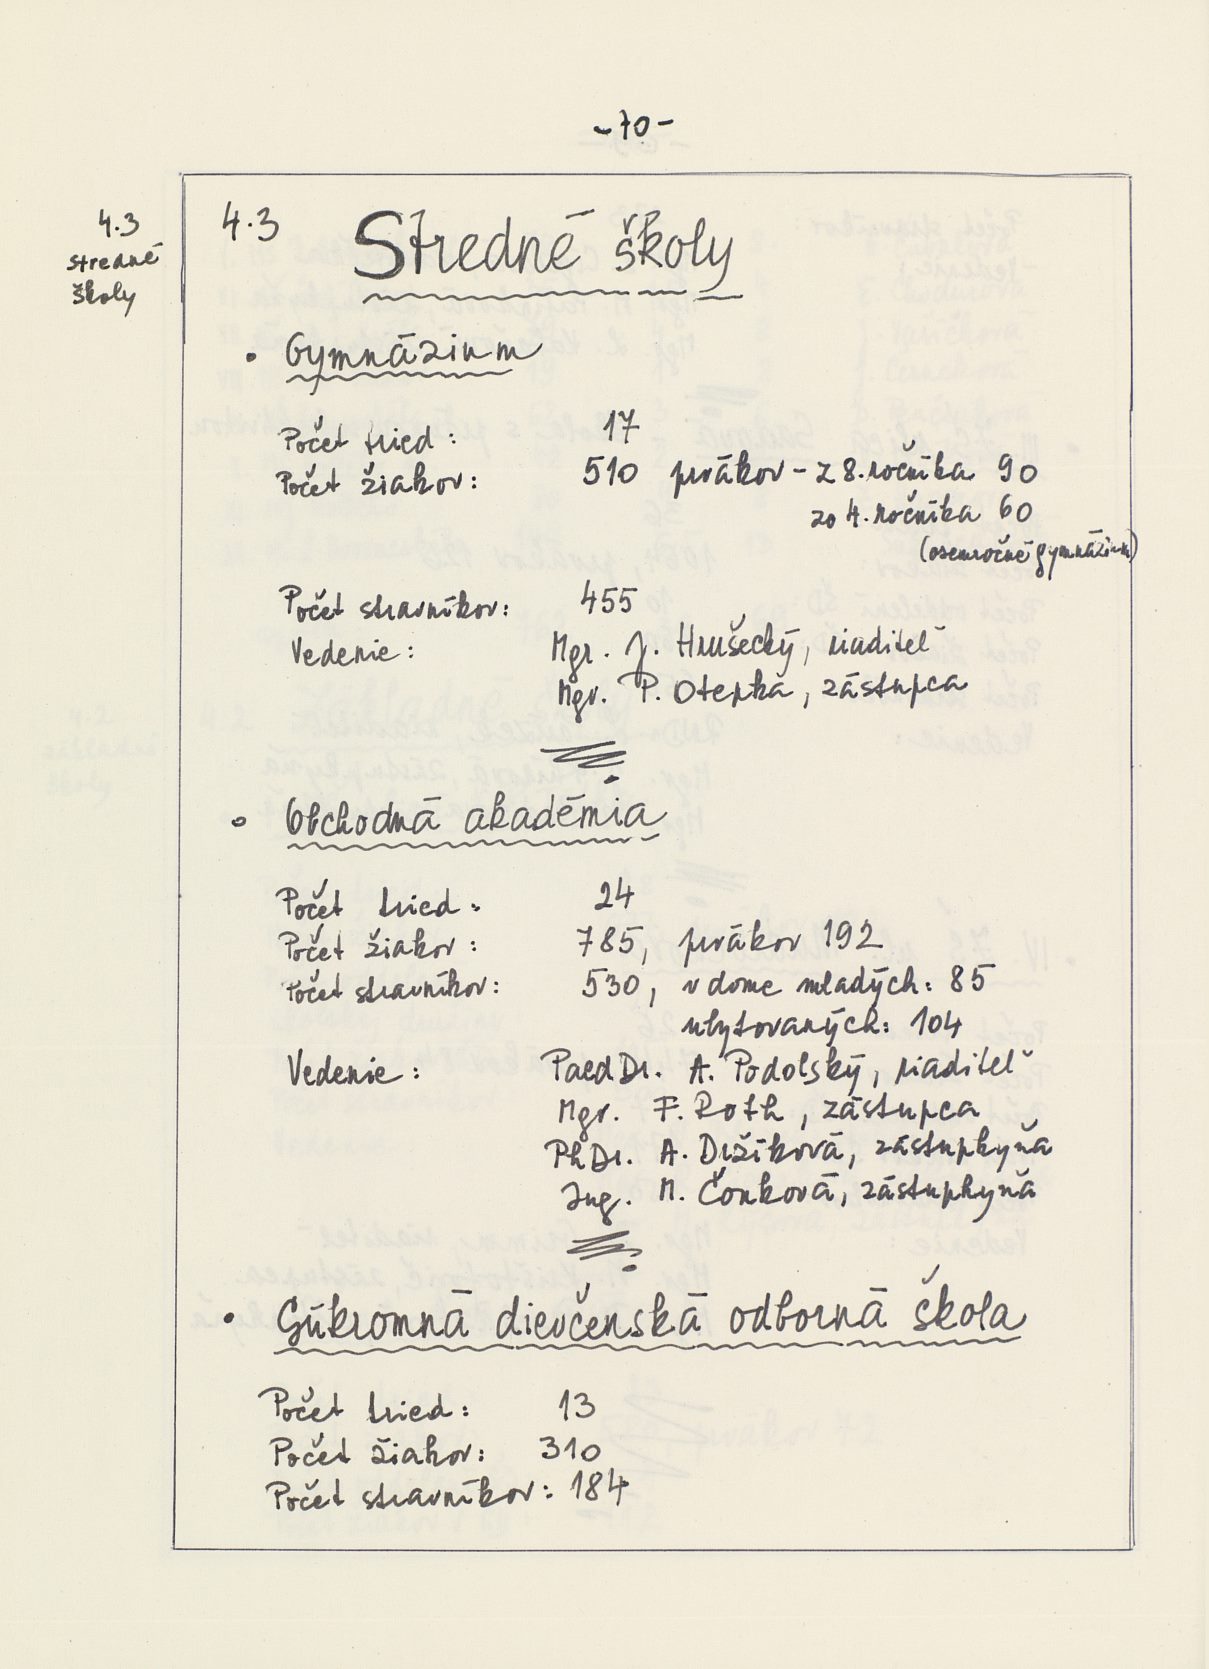 -70-
4.3
stredné
školy
4.3 Stredné školy
• Gymnázium
Počet tried: 17
Počet žiakov: 510 prvákov - z 8. ročníka 90
zo 4. ročníka 60
(osemročné gymnázium)
Počet stravníkov: 455
Vedenie: Mgr. J. Hrušecký, riaditeľ
Mgr. P. Otepka, zástupca
• Obchodná akadémia
Počet tried: 24
Počet žiakov: 785, prvákov 192
Počet stravníkov: 530, v dome mladých: 85
ubytovaných: 104
Vedenie: PaedDr. A. Podolský, riaditeľ
Mgr. F. Roth, zástupca
PhDr. A. Držíková, zástupkyňa
Ing. M. Čonková, zástupkyňa
• Súkromná dievčenská odborná škola
Počet tried: 13
Počet žiakov: 310
Počet stravníkov: 184